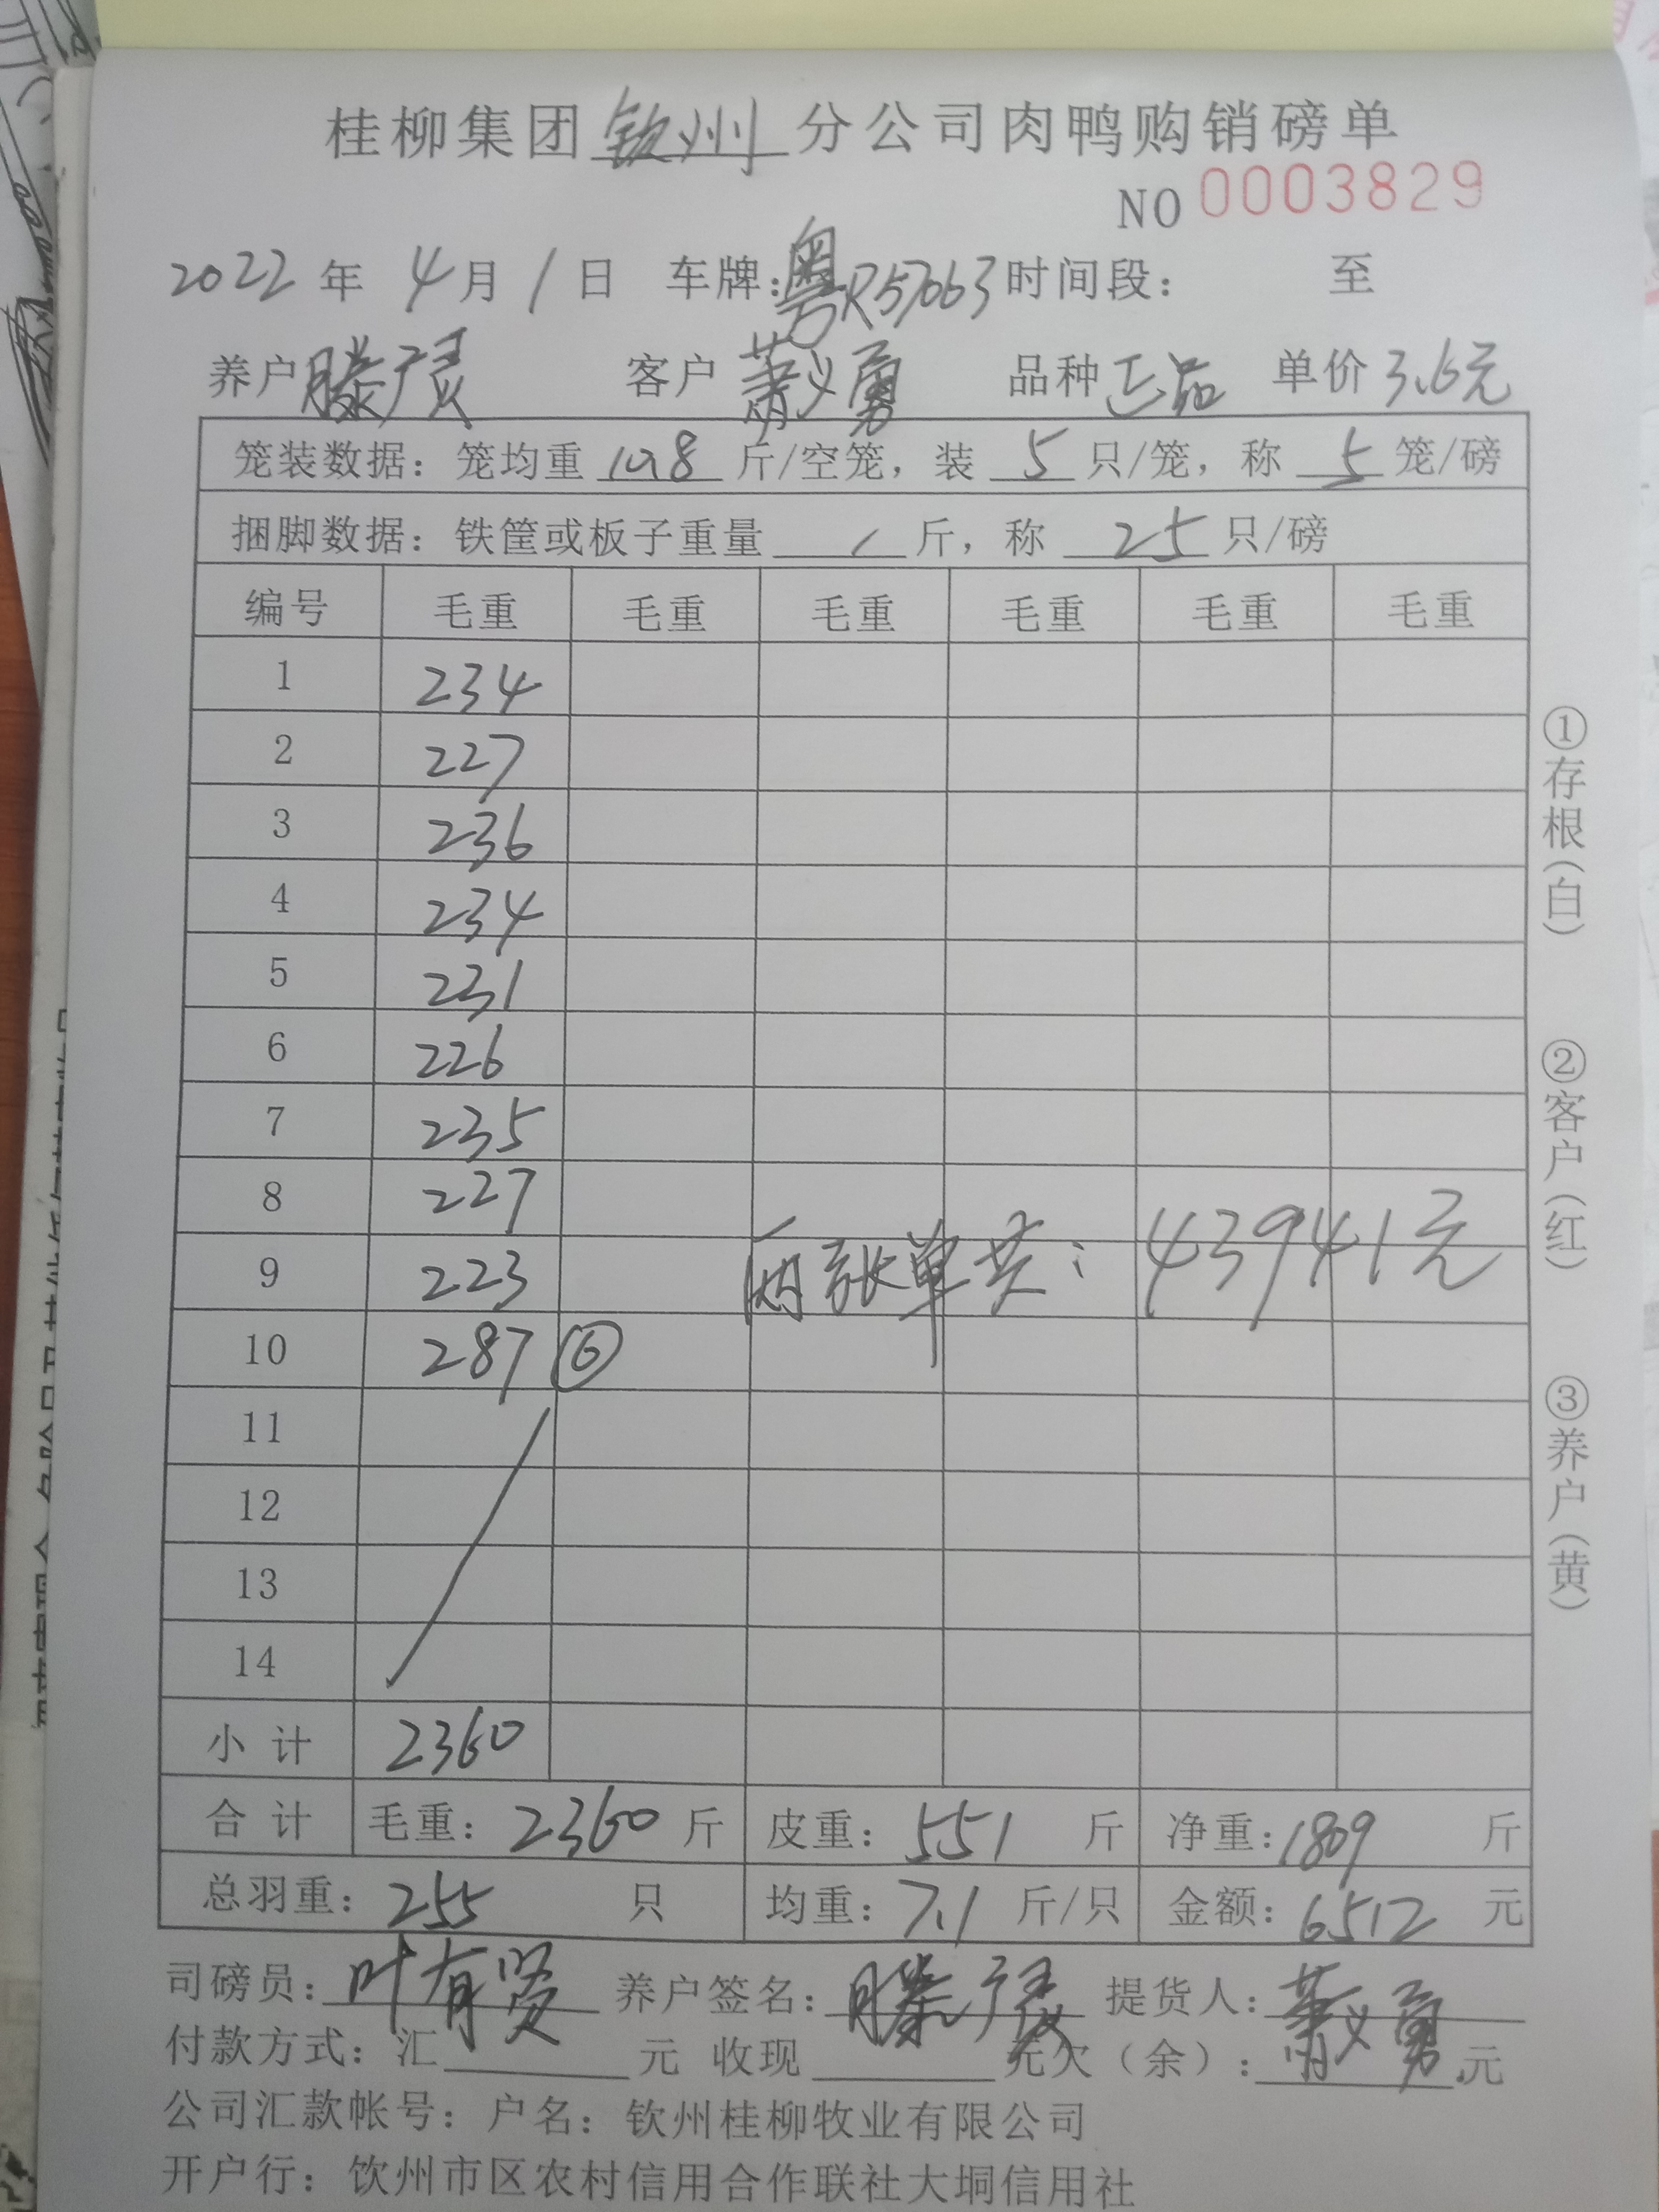 桂柳集团钦州分公司肉鸭购销磅单
NO 0003829
2022年4月1日 车牌:粤R57663 时间段: 至
养户 滕广 客户 萧义勇 品种 正品 单价 3.6元
笼装数据: 笼均重 10.8 斤/空笼, 装 5 只/笼, 称 5 笼/磅
捆脚数据: 铁筐或板子重量 / 斤, 称 25 只/磅
编号 毛重 毛重 毛重 毛重 毛重 毛重
1 234
2 227
3 236
4 234
5 231
6 226
7 235
8 227
9 223
两张单共: 43941元
10 287 ⑥
11
12
13
14
小计 2360
合计 毛重: 2360 斤 皮重: 551 斤 净重: 1809 斤
总羽重: 255 只 均重: 7.1 斤/只 金额: 6512 元
司磅员: 叶有贤 养户签名: 滕广 提货人: 萧义勇
付款方式: 汇 元 收现 元欠(余): 元
公司汇款帐号: 户名: 钦州桂柳牧业有限公司
开户行: 钦州市区农村信用合作联社大垌信用社
①存根(白)
②客户(红)
③养户(黄)